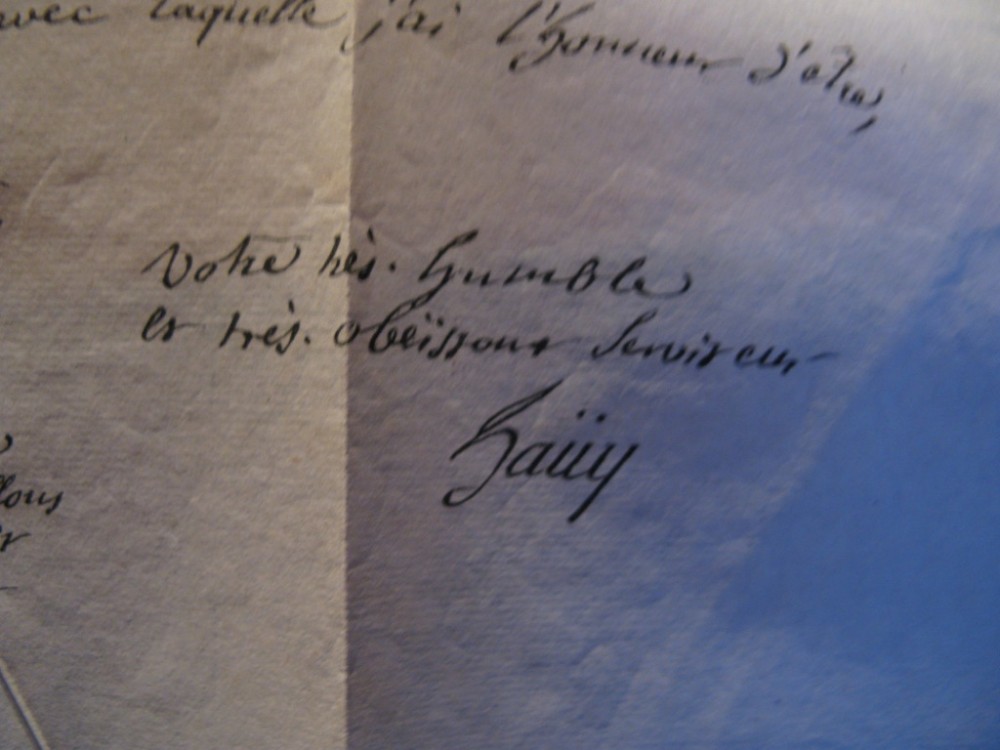 avec laquelle j'ai l'honneur d'être,
votre très. humble
et très. obëissant Serviteur
haüy